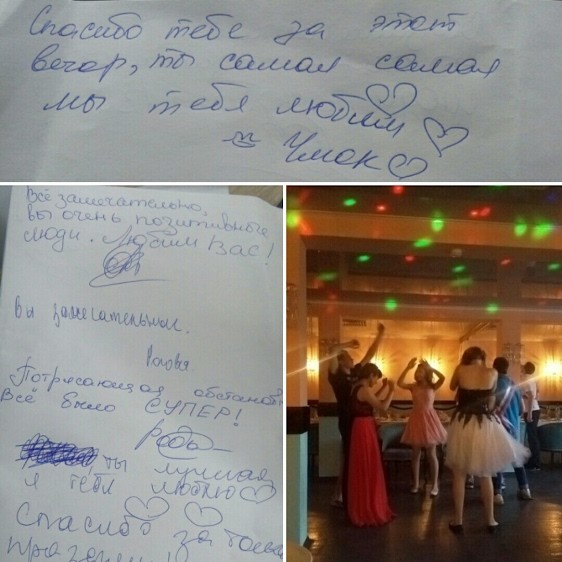 Спасибо тебе за этот
вечер, ты самая самая
мы тебя любим
Чмок
Всё замечательно,
вы очень позитивные
люди. Любим Вас!
Вы замечательные.
Потрясающая обстановка
Всё было СУПЕР!
ты лучшая
я тебя люблю
Спасибо за